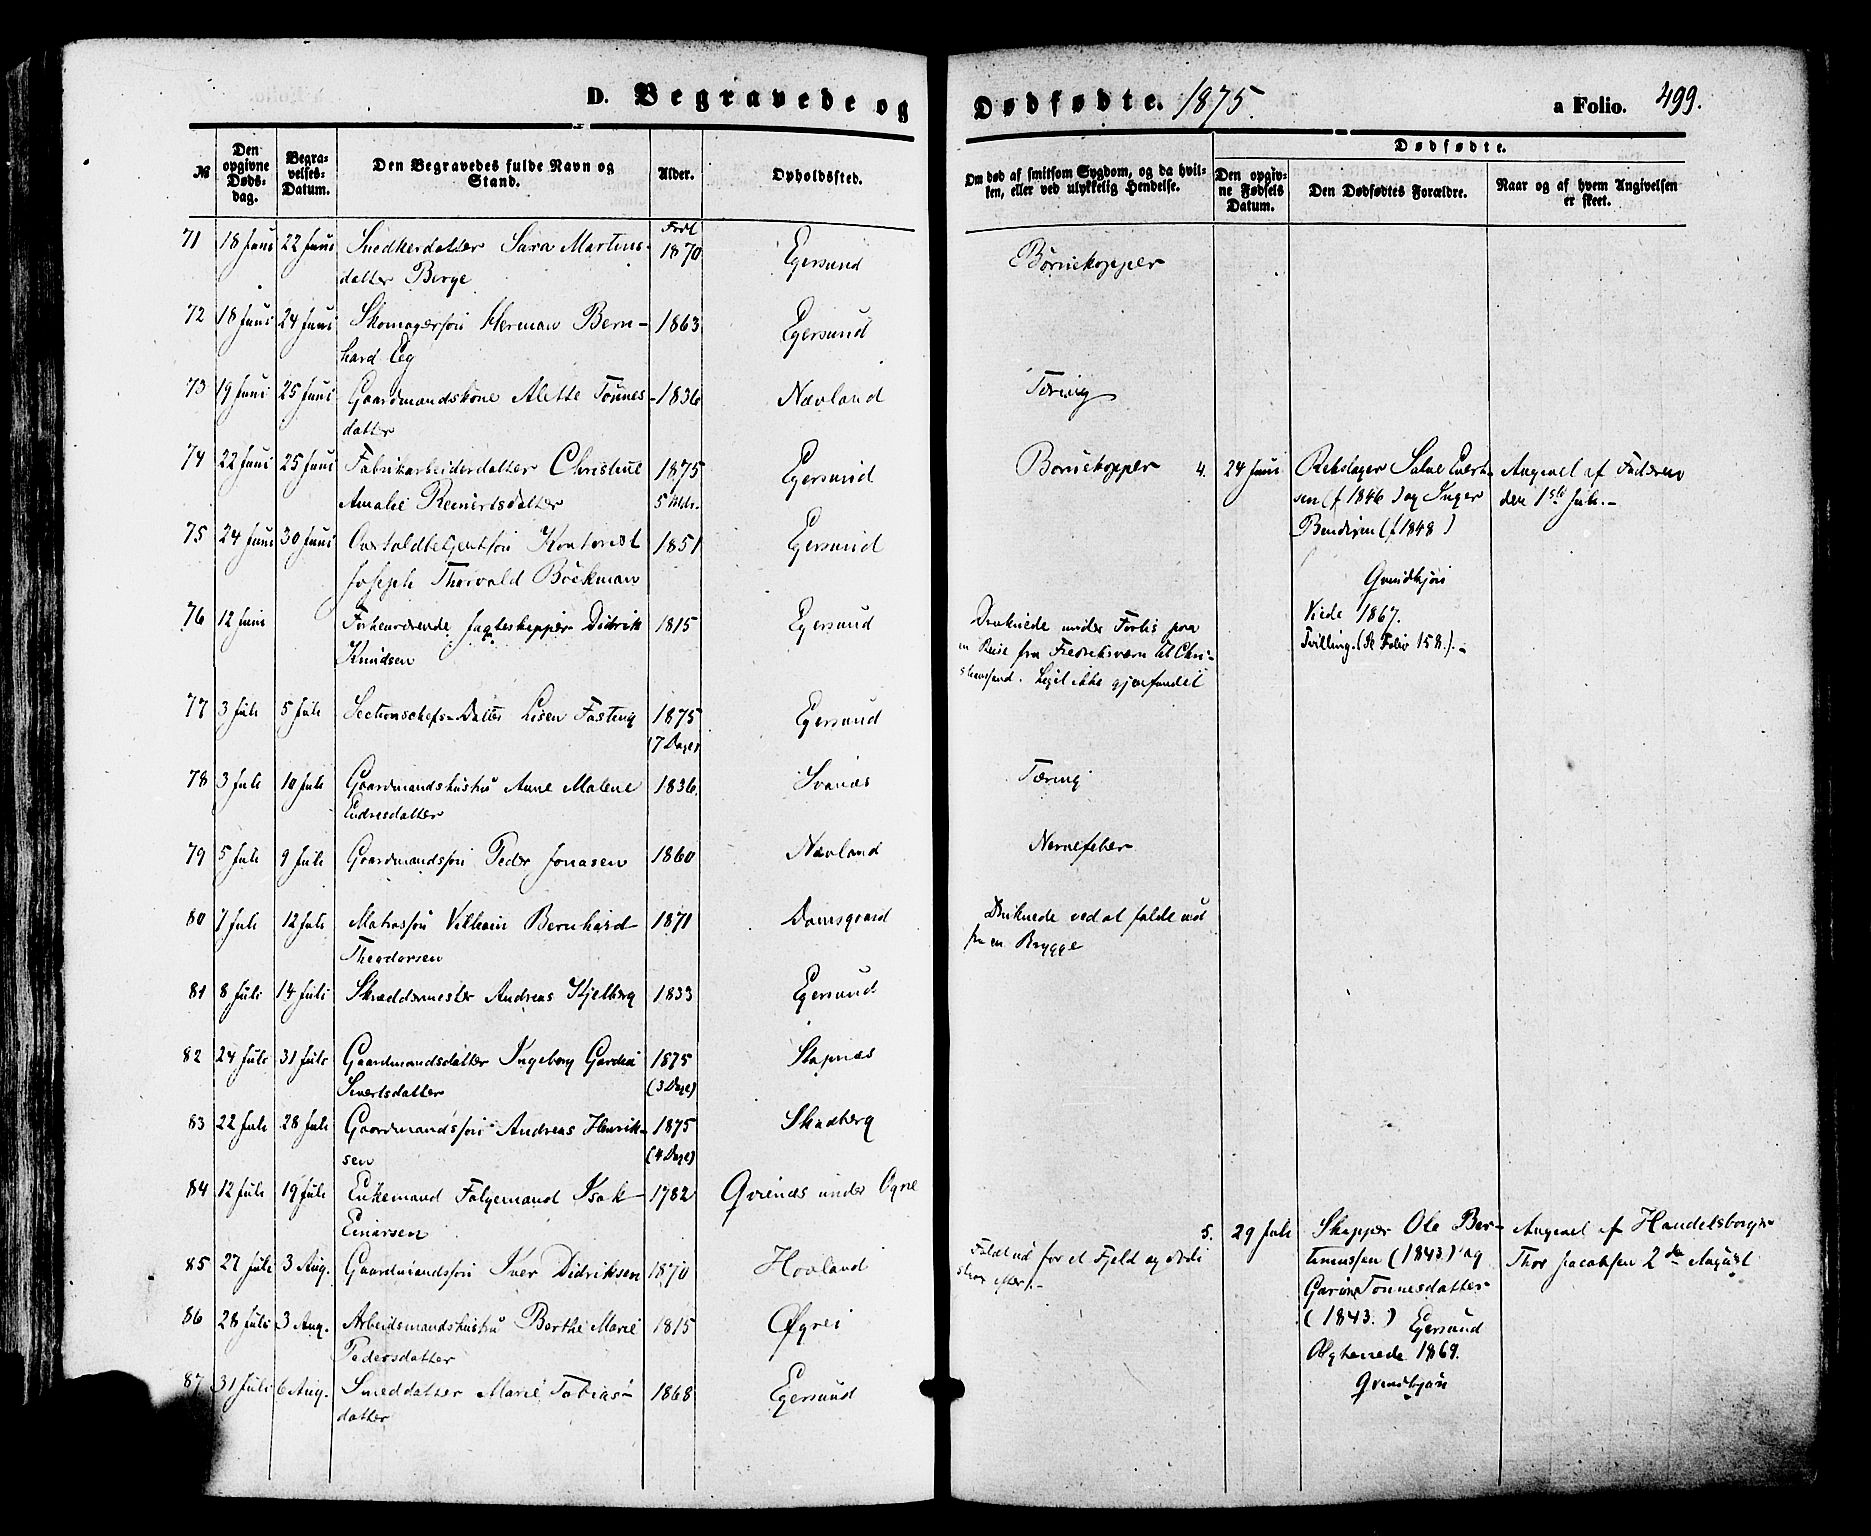 D. Begravede og
Dødfødte. 1875.
a Folio. 499.
№
Den opgivne Døds-dag.
Begra-velses-Datum.
Den Begravedes fulde Navn og Stand.
Alder.
Opholdssted.
Om død af smitsom Sygdom, og da hvil-ken, eller ved ulykkelig Hendelse.
Dødfødte.
Den opgiv-ne Fødsels Datum.
Den Dødfødtes Forældre.
Naar og af hvem Angivelsen er skeet.
71 18 Juni 22 Juni Snedkerdatter Sara Martins- 1870 Egersund Børnekopper
datter Berge
72 18 Juni 24 Juni Skomagersøn Herman Bern- 1863 Egersund
hard Eeg
73 19 Juni 25 Juni Gaardmandskone Alette Tønnes- 1836 Nævland Tæring
datter
74 22 Juni 25 Juni Fabrikarbeiderdatter Christine 1875 Egersund Børnekopper
Amalie Reinertsdatter 5 Mdr.
4. 24 Juni Rebslager Salve Evert- Angivet af Faderen
sen (f 1846) og Inger den 1ste Juli.-
Bendixen (f. 1848)
75 24 Juni 30 Juni Kontorist 1851 Egersund
Joseph Thorvald Böckman
Viede 1867.
Tvilling. (Se Folio 158.).-
76 12 Juni Forhenværende Jagteskipper Didrik 1815 Egersund
Knudsen
Druknede under Forlis paa
en Reise fra Fredriksværn til Chri-
stiansand. Liget ikke gjenfundet
77 3 Juli 5 Juli Sectionschefs-Datter Lisen Fasting 1875 Egersund
(7 Dage)
78 3 Juli 10 Juli Gaardmandshustru Anne Malene 1836. Svanæs Tæring
Endresdatter
79 5 Juli 9 Juli Gaardmandssøn Peder Jonasen 1860 Nævland Nervefeber
80 7 Juli 12 Juli Matrossøn Vilhelm Bernhard 1871 Damsgaard
Theodorsen
Druknede ved at falde ud
fra en Brygge
81 8 Juli 14 Juli Skræddermester Andreas Kjelberg 1833 Egersund
82 24 Juli 31 Juli Gaardmandsdatter Ingeborg Gurdine 1875 Stapnæs
Sivertsdatter (3 Dage)
83 22 Juli 28 Juli Gaardmandssøn Andreas Henrik- 1875 Skadberg
sen (4 Dage)
84 12 Juli 19 Juli Enkemand Følgemand Isak 1782 under Ogne
Einarsen
5. 29 Juli Skipper Ole Ber- Angivet af Handelsborger
tinussen (1843) og Thor Jacobsen 2den August
Tønnesdatter
(1843.) Egersund
Ægteviede 1869.
85 27 Juli 3 Aug. Gaardmandssøn Iver Didriksen 1870 Hovland
Faldt ud for et Fjeld og døde
strax efter.-
86 28 Juli 3 Aug. Arbeidsmandshustru Berthe Marie 1815 Øgrei
Pedersdatter
87 31 Juli 6 Aug. Smeddatter Marie Tobias- 1868 Egersund
datter